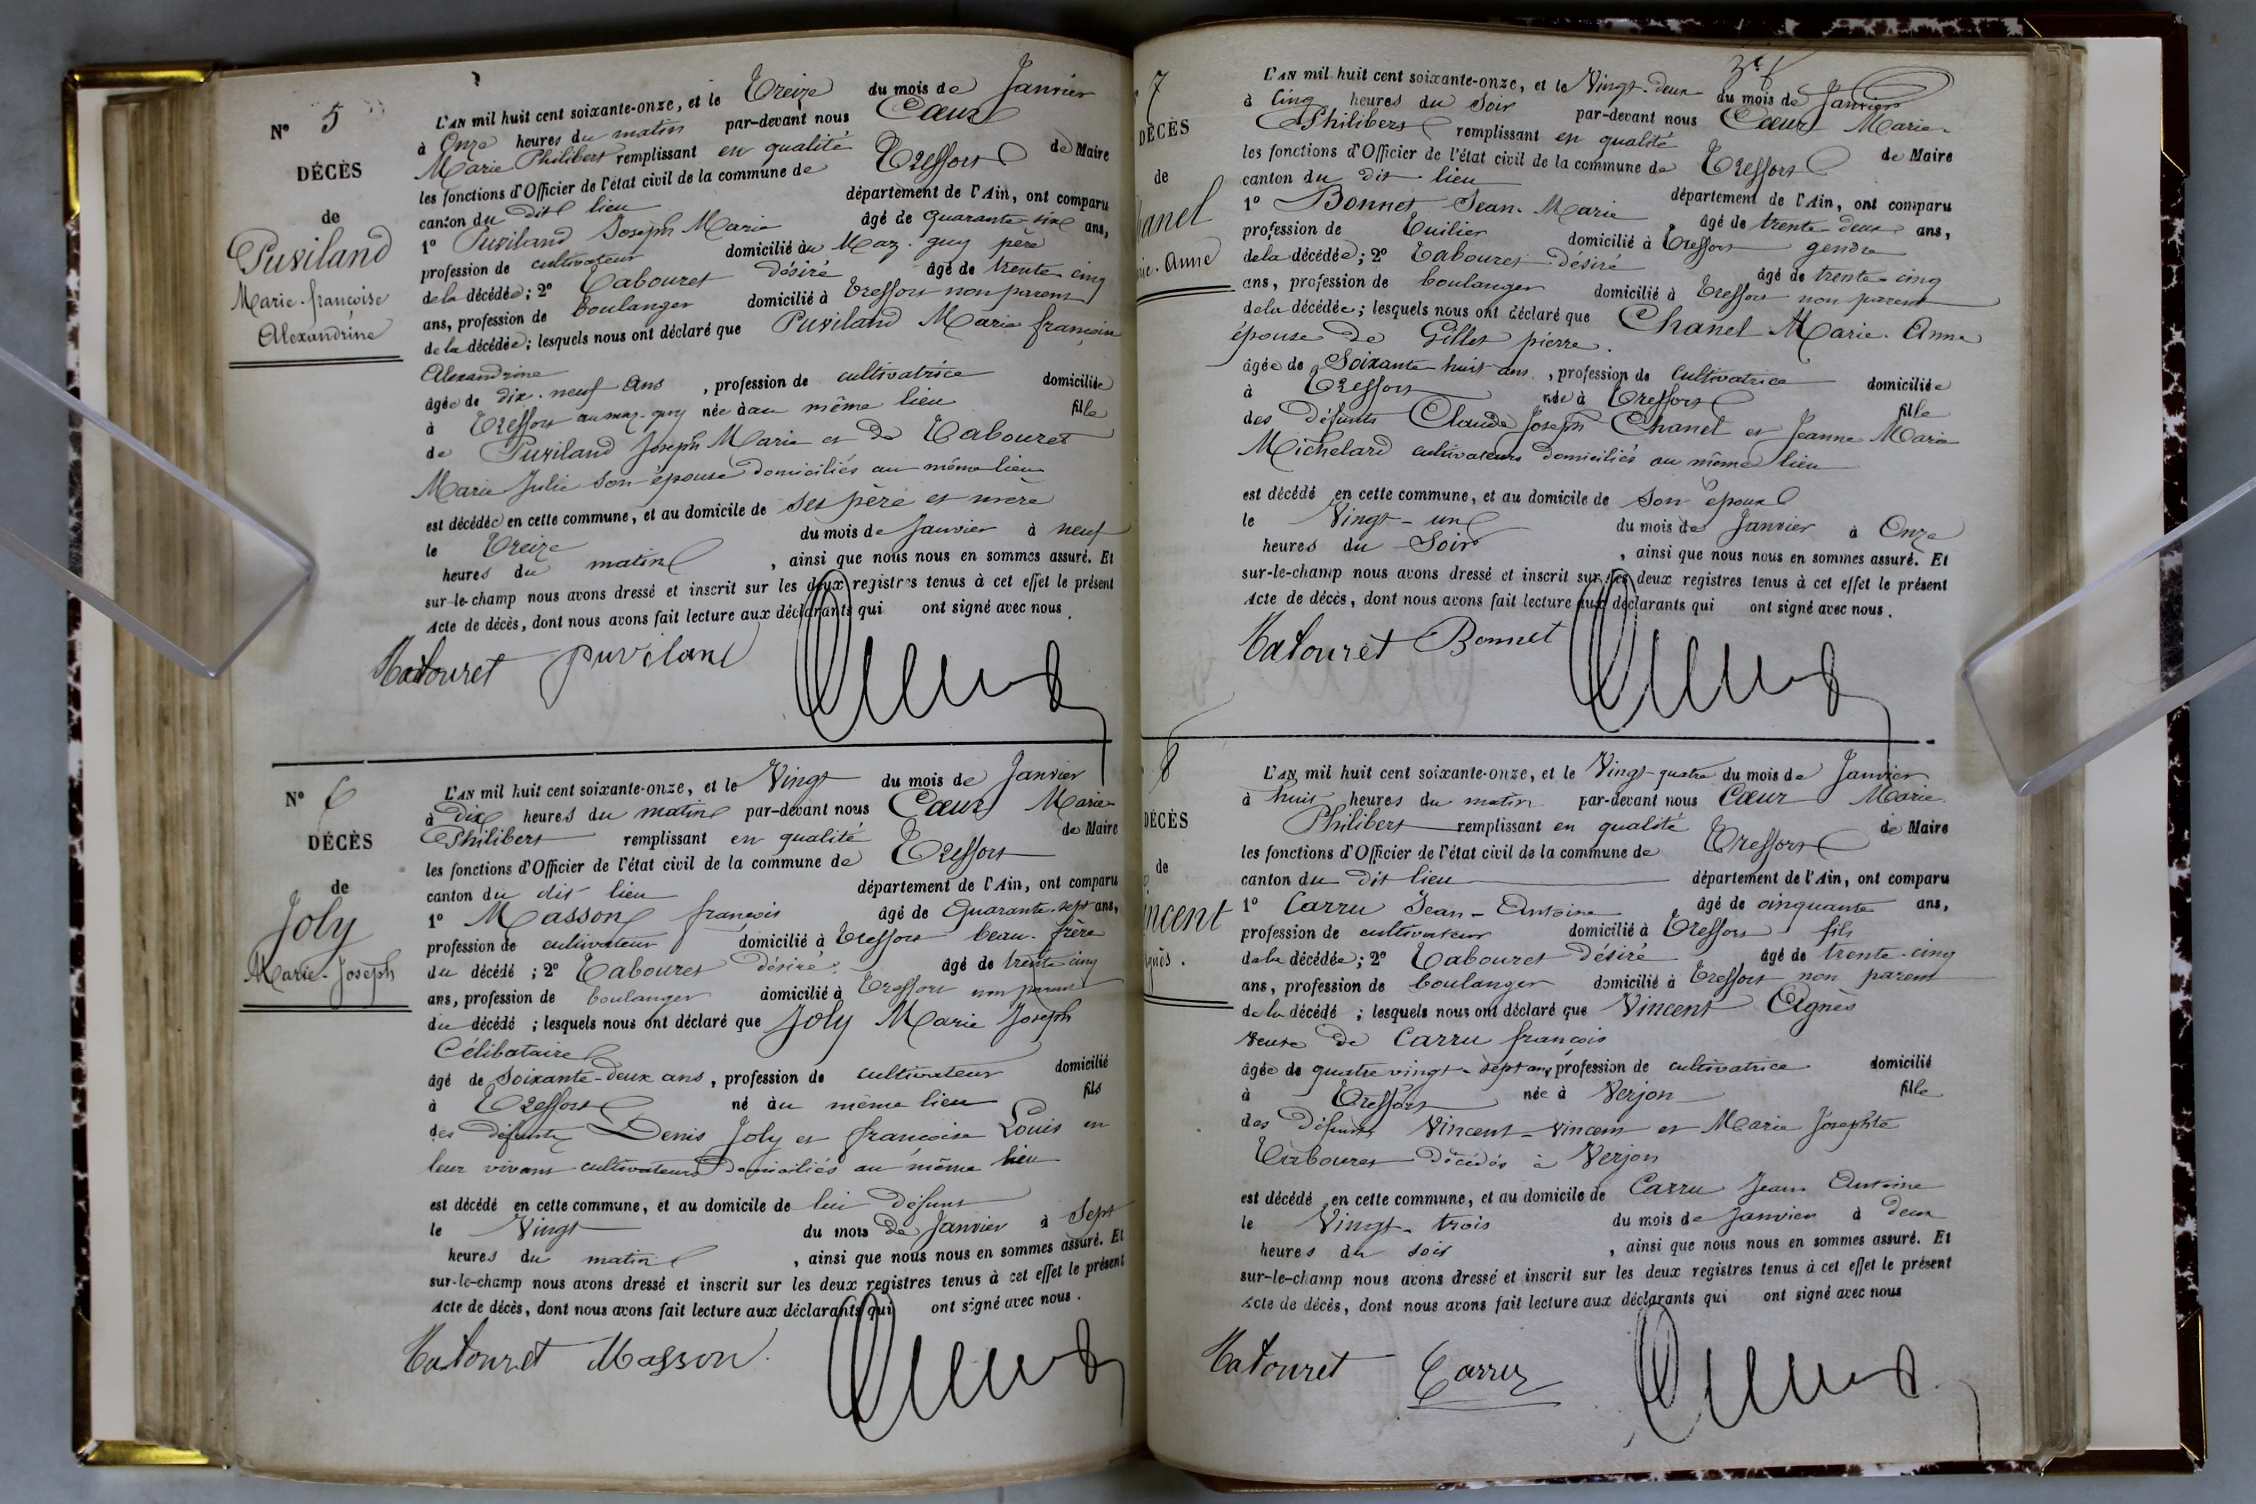 N° 5
DÉCÈS
de
Puviland
Marie-françoise
Alexandrine
L'AN mil huit cent soixante-onze, et le Treize du mois de Janvier
à Onze heures du matin par-devant nous Cœur
Marie Philibert remplissant en qualité de Maire
les fonctions d'Officier de l'état civil de la commune de Treffort
canton du dit lieu département de l'Ain, ont comparu
1° Puviland Joseph Marie âgé de quarante six ans,
profession de cultivateur domicilié au Maz-guy père
de la décédée; 2° Tabouret désiré âgé de trente cinq
ans, profession de boulanger domicilié à Treffort non parent
de la décédée; lesquels nous ont déclaré que Puviland Marie françoise
Alexandrine
âgée de dix-neuf ans, profession de cultivatrice domiciliée
à Treffort au maz-guy née à au même lieu fille
de Puviland Joseph Marie et de Tabouret
Marie Julie son épouse domiciliés au même lieu
est décédée en cette commune, et au domicile de ses père et mère
le Treize du mois de Janvier à neuf
heures du matin, ainsi que nous nous en sommes assuré. Et
sur-le-champ nous avons dressé et inscrit sur les deux registres tenus à cet effet le présent
Acte de décès, dont nous avons fait lecture aux déclarants qui ont signé avec nous.
Tabouret puviland
N° 6
DÉCÈS
de
Joly
Marie-Joseph
L'AN mil huit cent soixante-onze, et le Vingt du mois de Janvier
à Dix heures du matin par-devant nous Cœur Marie
Philibert remplissant en qualité de Maire
les fonctions d'Officier de l'état civil de la commune de Treffort
canton du dit lieu département de l'Ain, ont comparu
1° Masson françois âgé de Quarante-sept ans,
profession de cultivateur domicilié à Treffort beau-frère
du décédé; 2° Tabouret désiré âgé de trente cinq
ans, profession de boulanger domicilié à Treffort non parent
du décédé; lesquels nous ont déclaré que Joly Marie Joseph
Célibataire
âgé de soixante-deux ans, profession de cultivateur domicilié
à Treffort né à au même lieu fils
des défunts Denis Joly et françoise Louis en
leur vivant cultivateurs domiciliés au même lieu
est décédé en cette commune, et au domicile de lui défunt
le Vingt du mois de Janvier à Sept
heures du matin, ainsi que nous nous en sommes assuré. Et
sur-le-champ nous avons dressé et inscrit sur les deux registres tenus à cet effet le présent
Acte de décès, dont nous avons fait lecture aux déclarants qui ont signé avec nous.
Tabouret Masson
7
DÉCÈS
de
hanel
rie-Anne
L'AN mil huit cent soixante-onze, et le Vingt-deux du mois de Janvier
à Cinq heures du Soir par-devant nous Cœur Marie-
Philibert remplissant en qualité de Maire
les fonctions d'Officier de l'état civil de la commune de Treffort
canton du dit lieu département de l'Ain, ont comparu
1° Bonnet Jean-Marie âgé de trente deux ans,
profession de Tuilier domicilié à Treffort gendre
de la décédée; 2° Tabouret désiré âgé de trente cinq
ans, profession de boulanger domicilié à Treffort non parent
de la décédée; lesquels nous ont déclaré que Chanel Marie-Anne
épouse de Gillet pierre.
âgée de Soixante huit ans, profession de Cultivatrice domiciliée
à Treffort née à Treffort fille
des défunts Claude Joseph Chanel et Jeanne Marie
Michelard cultivateurs domiciliés au même lieu
est décédé en cette commune, et au domicile de son époux
le Vingt-un du mois de Janvier à Onze
heures du Soir, ainsi que nous nous en sommes assuré. Et
sur-le-champ nous avons dressé et inscrit sur les deux registres tenus à cet effet le présent
Acte de décès, dont nous avons fait lecture aux déclarants qui ont signé avec nous.
Tabouret Bonnet
8
DÉCÈS
de
incent
gnès.
L'AN mil huit cent soixante-onze, et le Vingt-quatre du mois de Janvier
à huit heures du matin par-devant nous Cœur Marie
Philibert remplissant en qualité de Maire
les fonctions d'Officier de l'état civil de la commune de Treffort
canton du dit lieu département de l'Ain, ont comparu
1° Carru Jean-Antoine âgé de cinquante ans,
profession de cultivateur domicilié à Treffort fils
de la décédée; 2° Tabouret Désiré âgé de trente-cinq
ans, profession de boulanger domicilié à Treffort non parent
de la décédé; lesquels nous ont déclaré que Vincent Agnès
veuve de Carru françois
âgée de quatre vingt-sept ans, profession de cultivatrice domicilié
à Treffort née à Verjon fille
des défunts Vincent-Vincent et Marie Josephte
Tabouret décédés à Verjon
est décédé en cette commune, et au domicile de Carru Jean Antoine
le Vingt-trois du mois de Janvier à deux
heures du soir, ainsi que nous nous en sommes assuré. Et
sur-le-champ nous avons dressé et inscrit sur les deux registres tenus à cet effet le présent
Acte de décès, dont nous avons fait lecture aux déclarants qui ont signé avec nous
Tabouret Carru